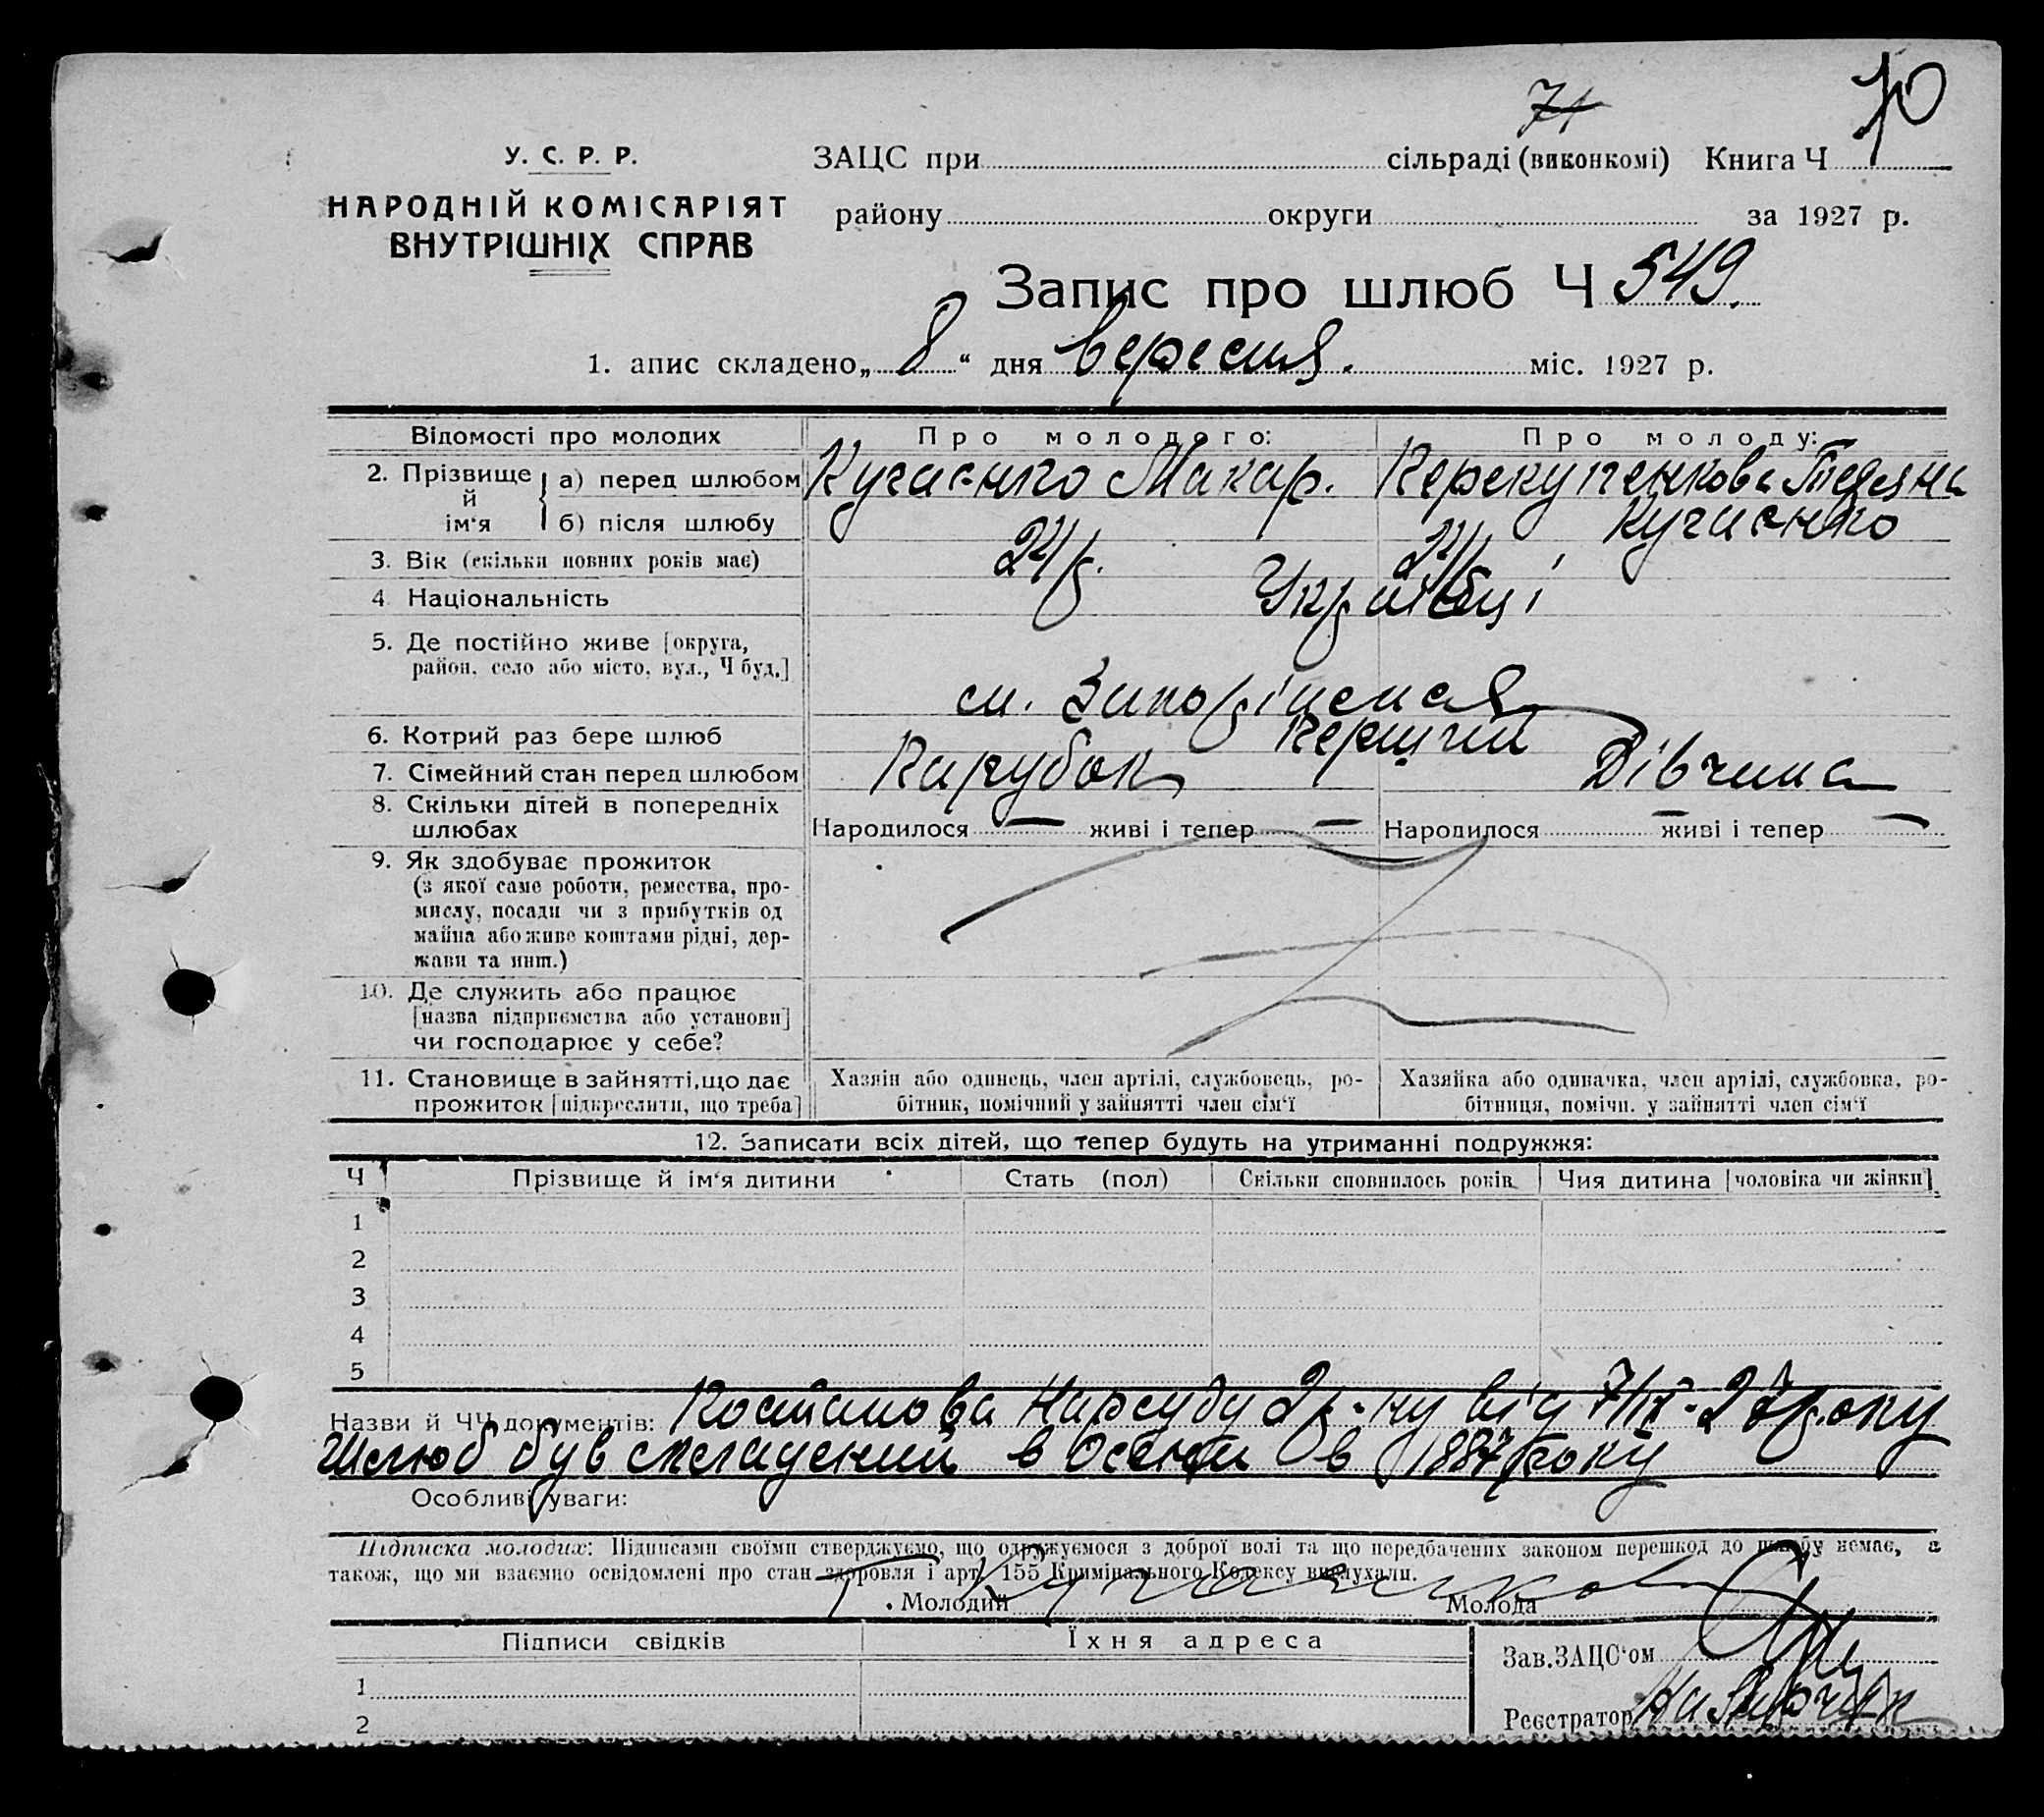 71
70
У. С. Р. Р.
НАРОДНІЙ КОМІСАРІЯТ
ВНУТРІШНІХ СПРАВ
ЗАЦС при сільраді (виконкомі) Книга Ч
району округи за 1927 р.
Запис про шлюб Ч 549.
1. апис складено „ 8 “ дня вересня. міс. 1927 р.
Відомості про молодих Про молодого: Про молоду:
2. Прізвище й ім'я а) перед шлюбом Кучаєнко Макар.
б) після шлюбу Кучаєнко
3. Вік (скільки повних років має) 24 р.
4 Національність Українці
5. Де постійно живе [округа,
район, село або місто, вул., Ч буд.]
6. Котрий раз бере шлюб Перший
7. Сімейний стан перед шлюбом Парубок Дівчина
8. Скільки дітей в попередніх
шлюбах Народилося — живі і тепер — Народилося — живі і тепер —
9. Як здобуває прожиток
(з якої саме роботи, ремества, про-
мислу, посади чи з прибутків од
майна або живе коштами рідні, дер-
жави та инш.)
10. Де служить або працює
[назва підприємства або установи]
чи господарює у себе?
11. Становище в зайнятті, що дає
прожиток [підкреслити, що треба]
Хазяїн або одинець, член артілі, службовець, ро-
бітник, помічний у зайнятті член сім'ї
Хазяйка або одиначка, член артілі, службовка, ро-
бітниця, помічн. у зайнятті член сім'ї
12. Записати всіх дітей, що тепер будуть на утриманні подружжя:
Ч Прізвище й ім'я дитини Стать (пол) Скільки сповнилось років Чия дитина [чоловіка чи жінки]
1
2
3
4
5
Назви й ЧЧ документів: Постанова Нарсуду 2 р-ну від 7/IX-27 року
Шлюб був складений в осени в 1887 року
Особливі уваги:
Підписка молодих: Підписами своїми стверджуємо, що одружуємося з доброї волі та що передбачених законом перешкод до шлюбу немає, а
також, що ми взаємно освідомлені про стан здоровля і арт. 155 Кримінального Кодексу вислухали.
Молодий Молода
Підписи свідків Їхня адреса
Зав. ЗАЦС'ом
1
Реєстратор
2